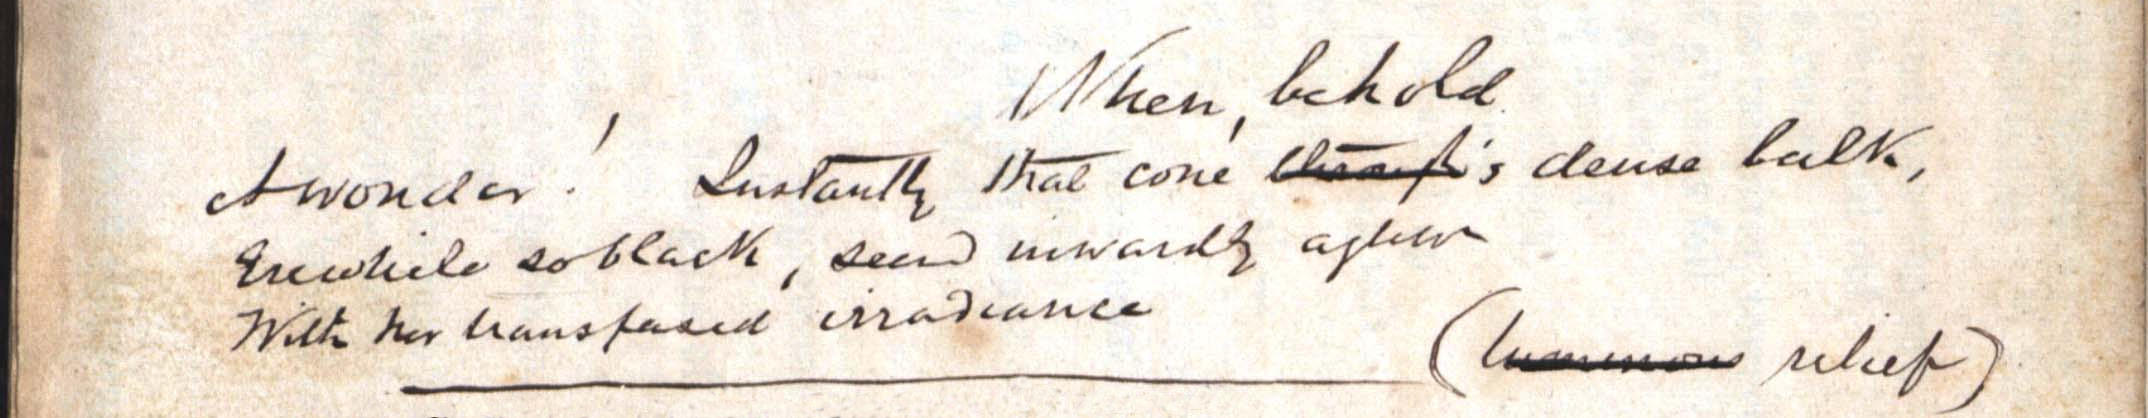 When, behold
A wonder! Instantly that cone's dense bulk,
Erewhile so black, seem'd inwardly aglow
With her transfused irradiance
(luminous relief)